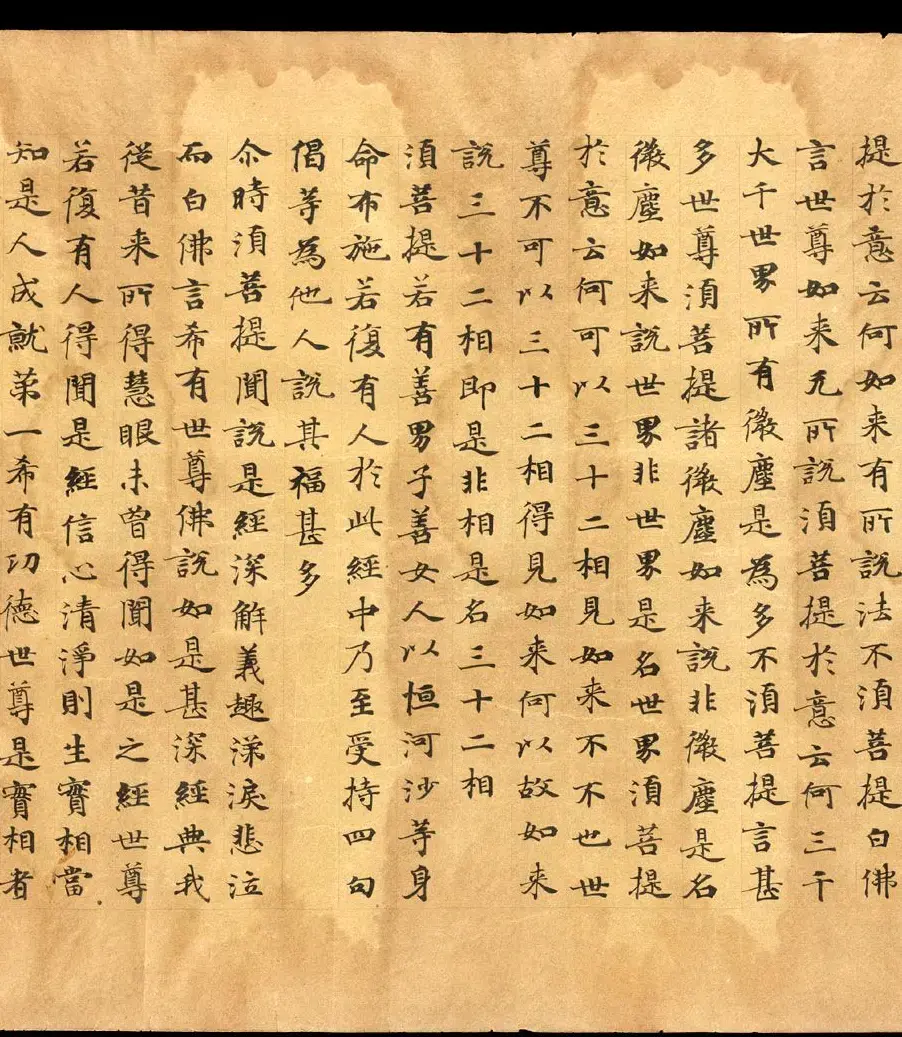 提於意云何如来有所說法不湏菩提白佛
言世尊如来无所說湏菩提於意云何三千
大千世界所有微塵是為多不湏菩提言甚
多世尊湏菩提諸微塵如来說非微塵是名
微塵如来說世界非世界是名世界湏菩提
於意云何可以三十二相見如来不不也世
尊不可以三十二相得見如来何以故如来
說三十二相即是非相是名三十二相
湏菩提若有善男子善女人以恒河沙等身
命布施若復有人於此經中乃至受持四句
偈等為他人說其福甚多
尒時湏菩提聞說是經深解義趣涕淚悲泣
而白佛言希有世尊佛說如是甚深經典我
從昔来所得慧眼未曾得聞如是之經世尊
若復有人得聞是經信心清淨則生實相當
知是人成就苐一希有功德世尊是實相者